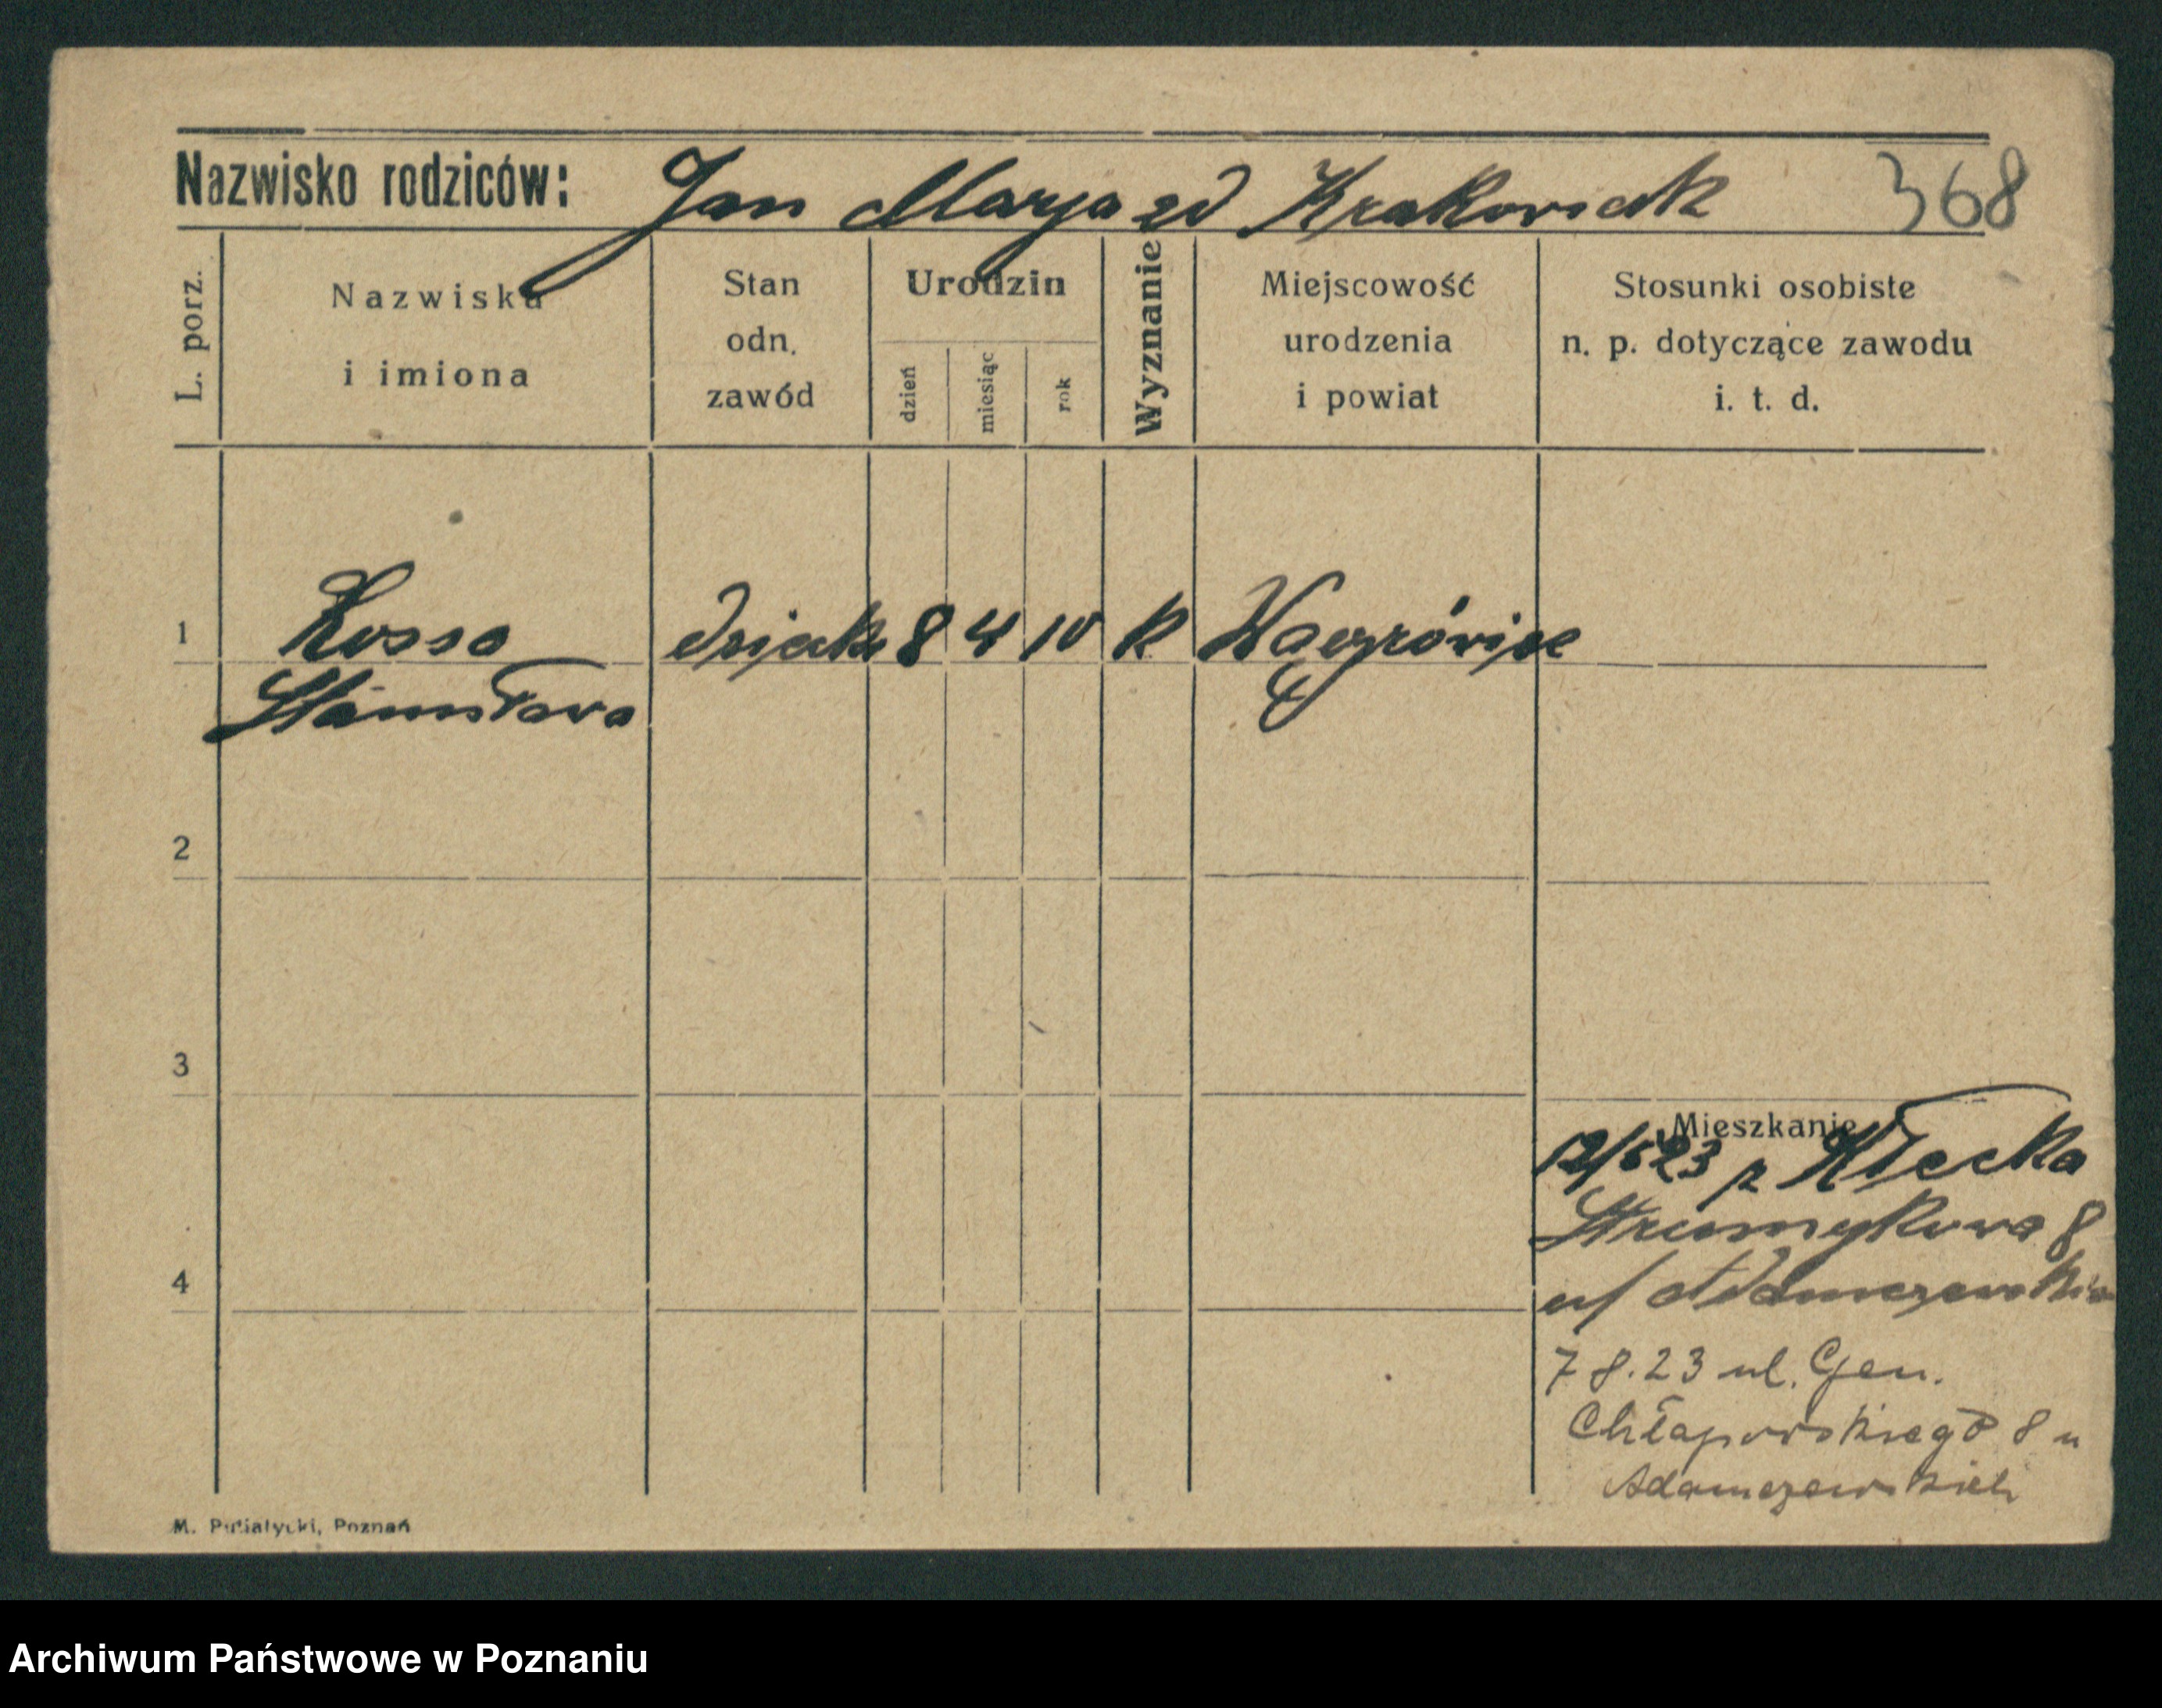 Nazwisko rodziców: Jan Marja zd Krakowiak 368
L. porz.
Nazwiska
i imiona
Stan
odn.
zawód
Urodzin
dzień
miesiąc
rok
Wyznanie
Miejscowość
urodzenia
i powiat
Stosunki osobiste
n. p. dotyczące zawodu
i. t. d.
1 Kosso 8 4 10 k Wągrówiec
Stanisława
2
3
Mieszkanie
12/5 23 z Kłecka
Strumykowa 8
4
u/ Adamczewskich
7 8.23 ul. Gen.
Chłapowskiego 8 u
Adamczewskich
M. Putiatycki, Poznań
Archiwum Państwowe w Poznaniu